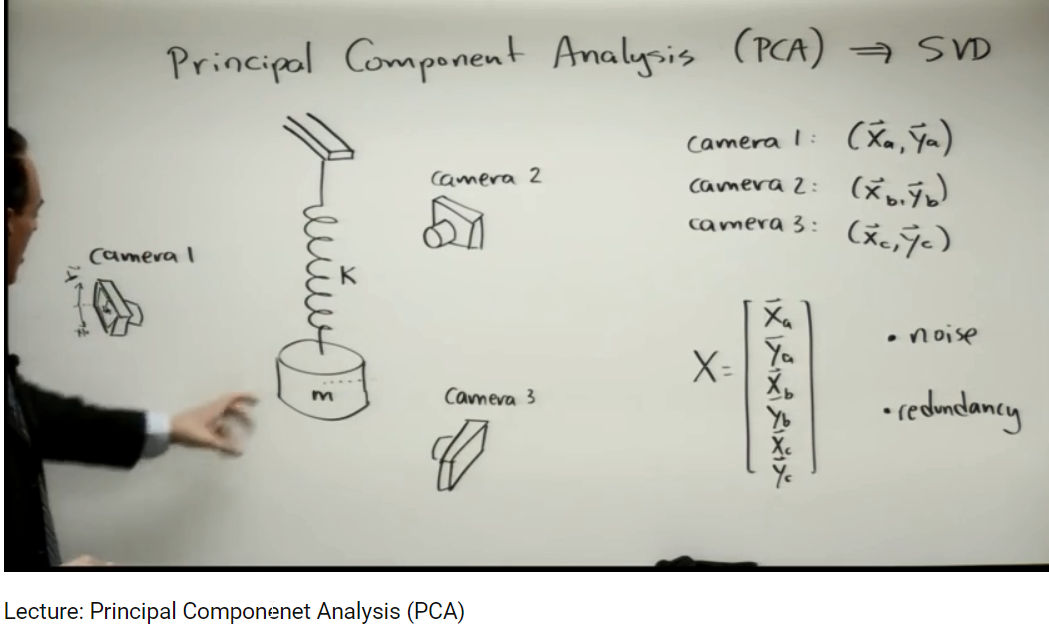 Principal Component Analysis (PCA) ⇒ SVD
camera 1
camera 2
K
m
Camera 3
camera 1: (x⃗a, y⃗a)
camera 2: (x⃗b, y⃗b)
camera 3: (x⃗c, y⃗c)
X = [x⃗a
y⃗a
x⃗b
y⃗b
x⃗c
y⃗c]
• noise
• redundancy
Lecture: Principal Componenet Analysis (PCA)